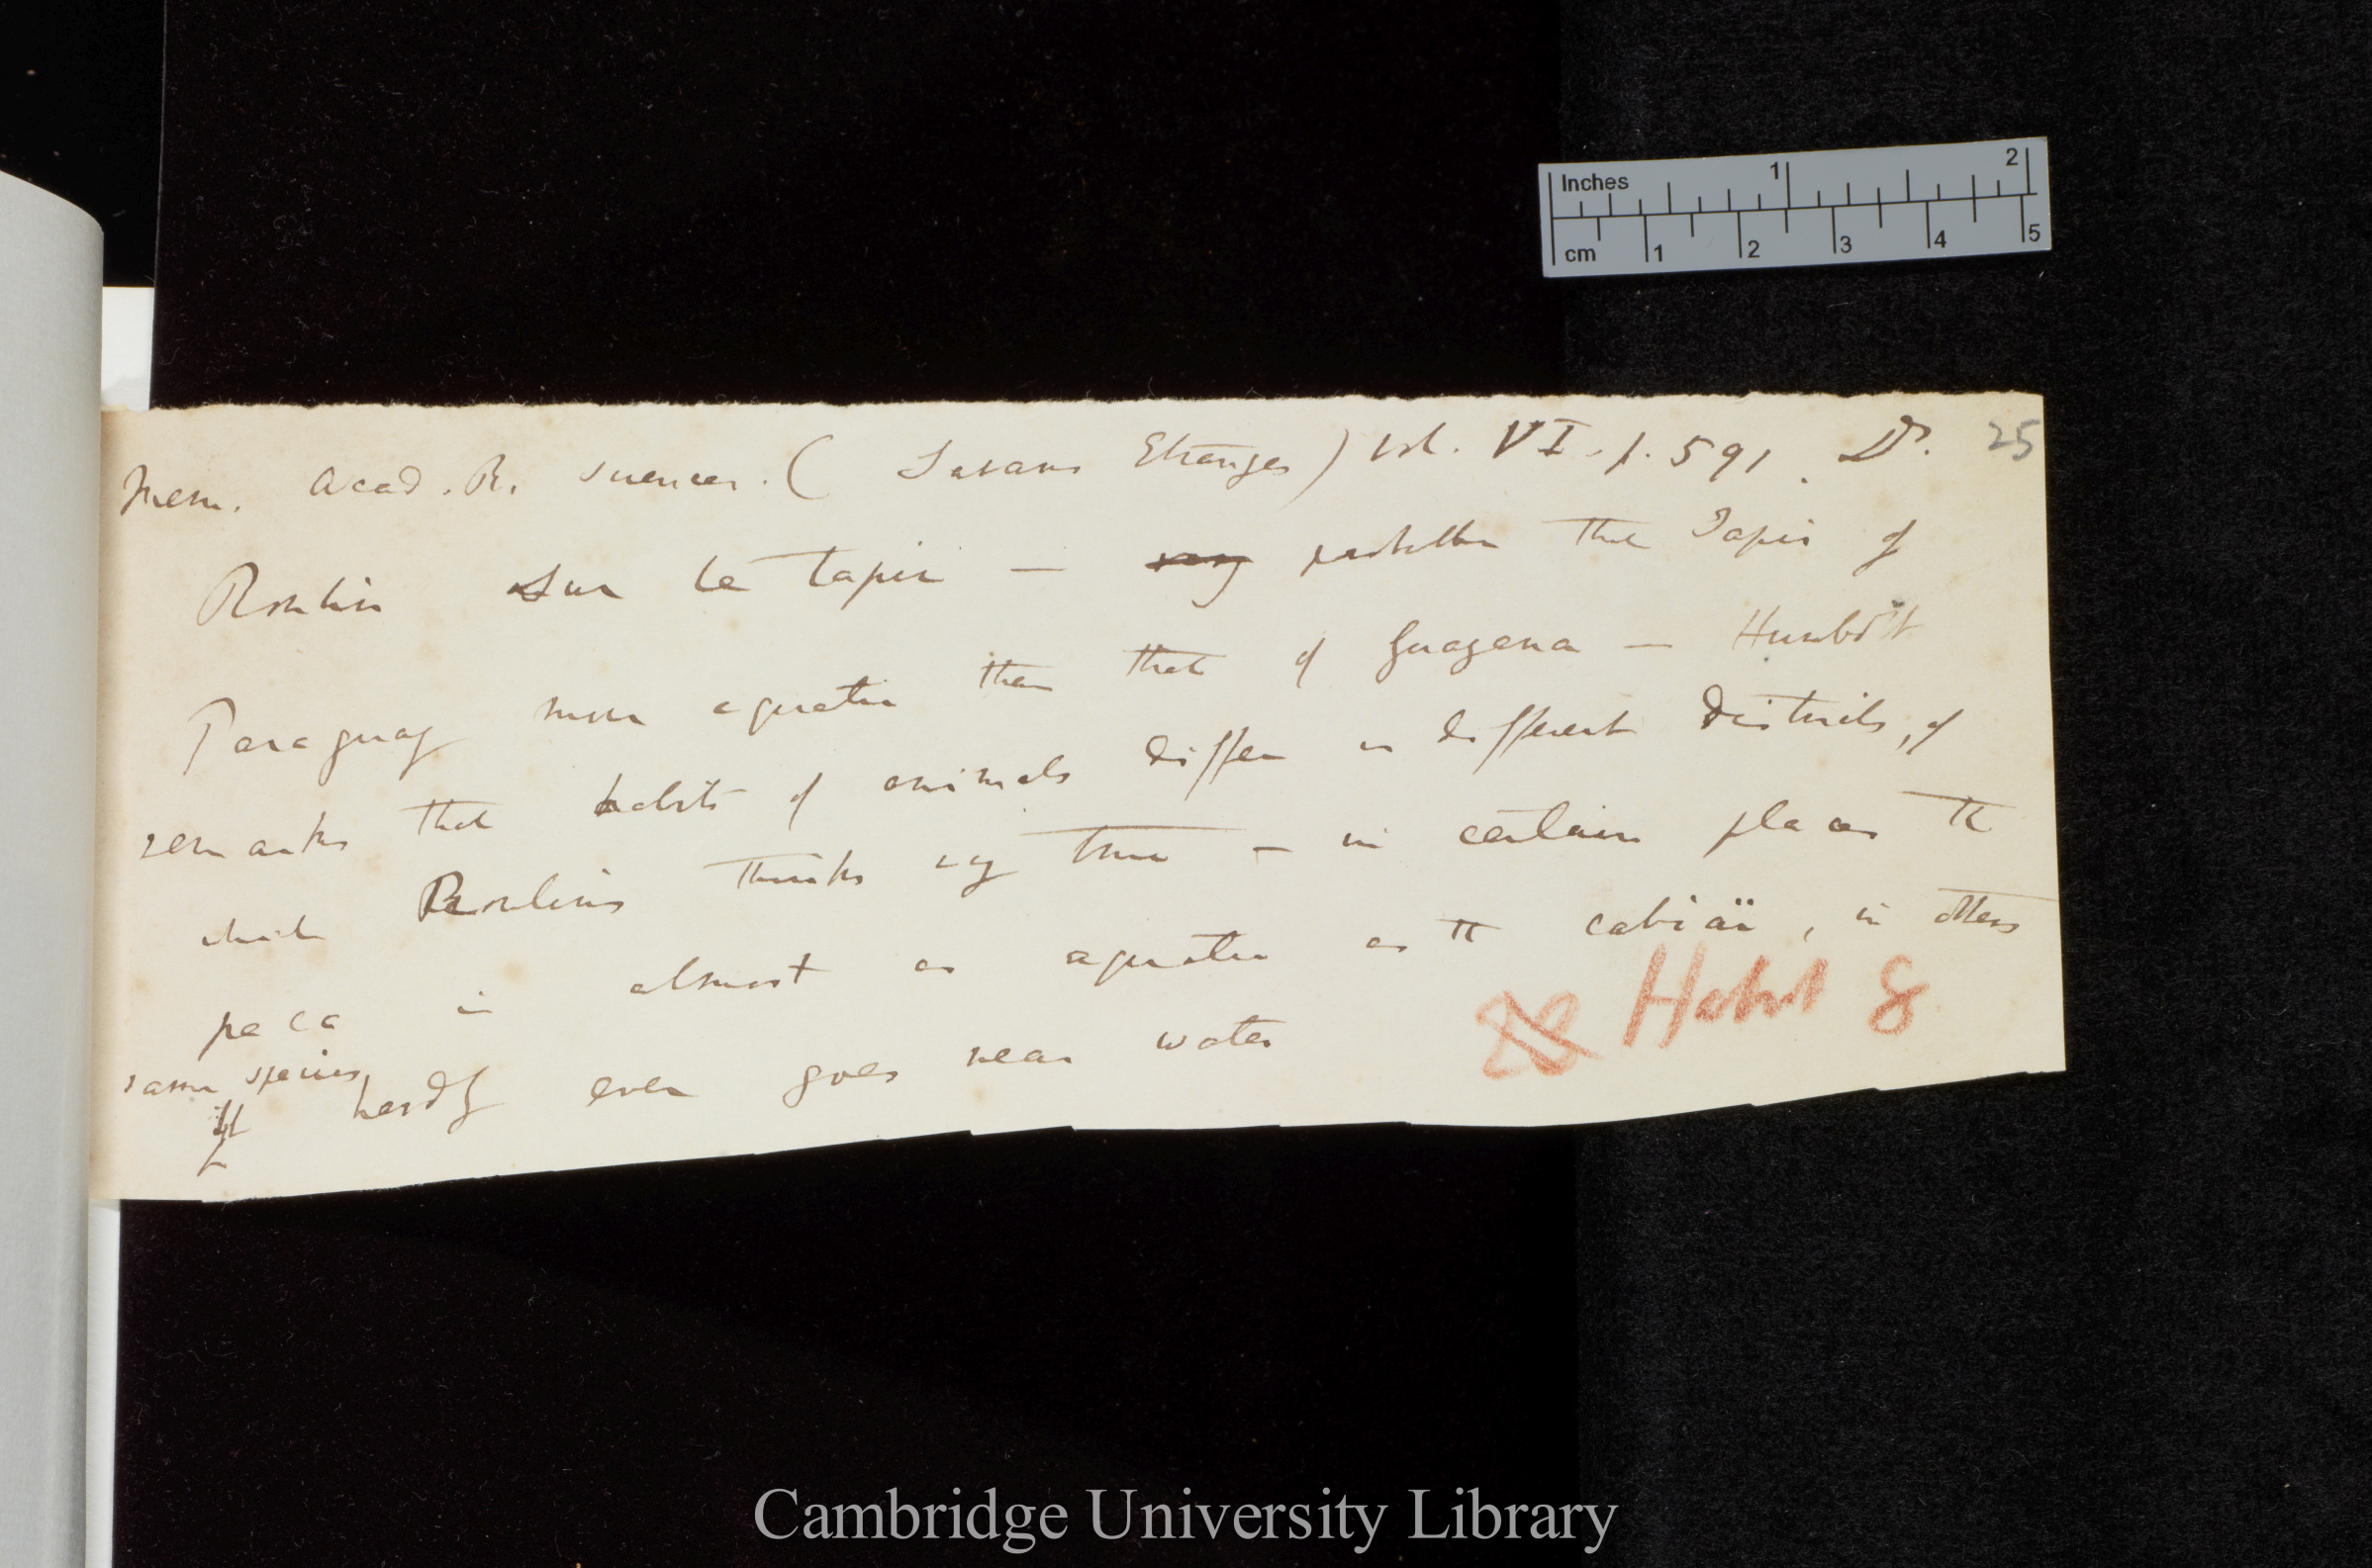 Inches 1 2
cm 1 2 3 4 5
25
Mem. Acad. R. Sciences. (Savans Etranges) Vol. VI. p. 591. Dr.
Roulin Sur le Tapir — very that the Tapir of
Paraguay more aquatic than that of Guayana — Humboldt
remarks that habits of animals differ in different districts, of
which Roulin thinks very true — in certain places the
paca is almost as aquatic as the cabiaï, in others
same species
hardly ever goes near water
28 Habit 8
Cambridge University Library